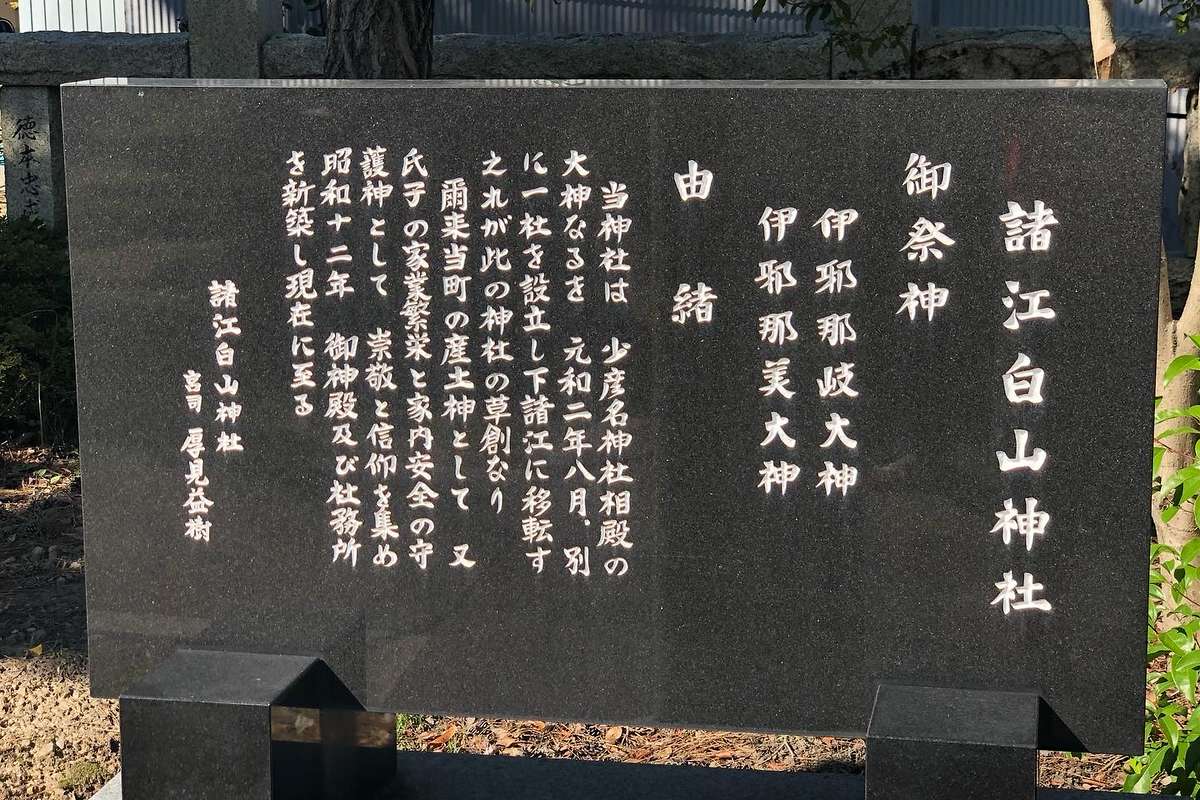 諸江白山神社
御祭神
伊邪那岐大神
伊邪那美大神
由緒
当神社は 少彦名神社相殿の
大神なるを 元和二年八月、別
に一社を設立し下諸江に移転す
之れが此の神社の草創なり
爾来当町の産土神として 又
氏子の家業繁栄と家内安全の守
護神として 崇敬と信仰を集め
昭和十二年 御神殿及び社務所
を新築し現在に至る
諸江白山神社
宮司 厚見益樹
徳本忠